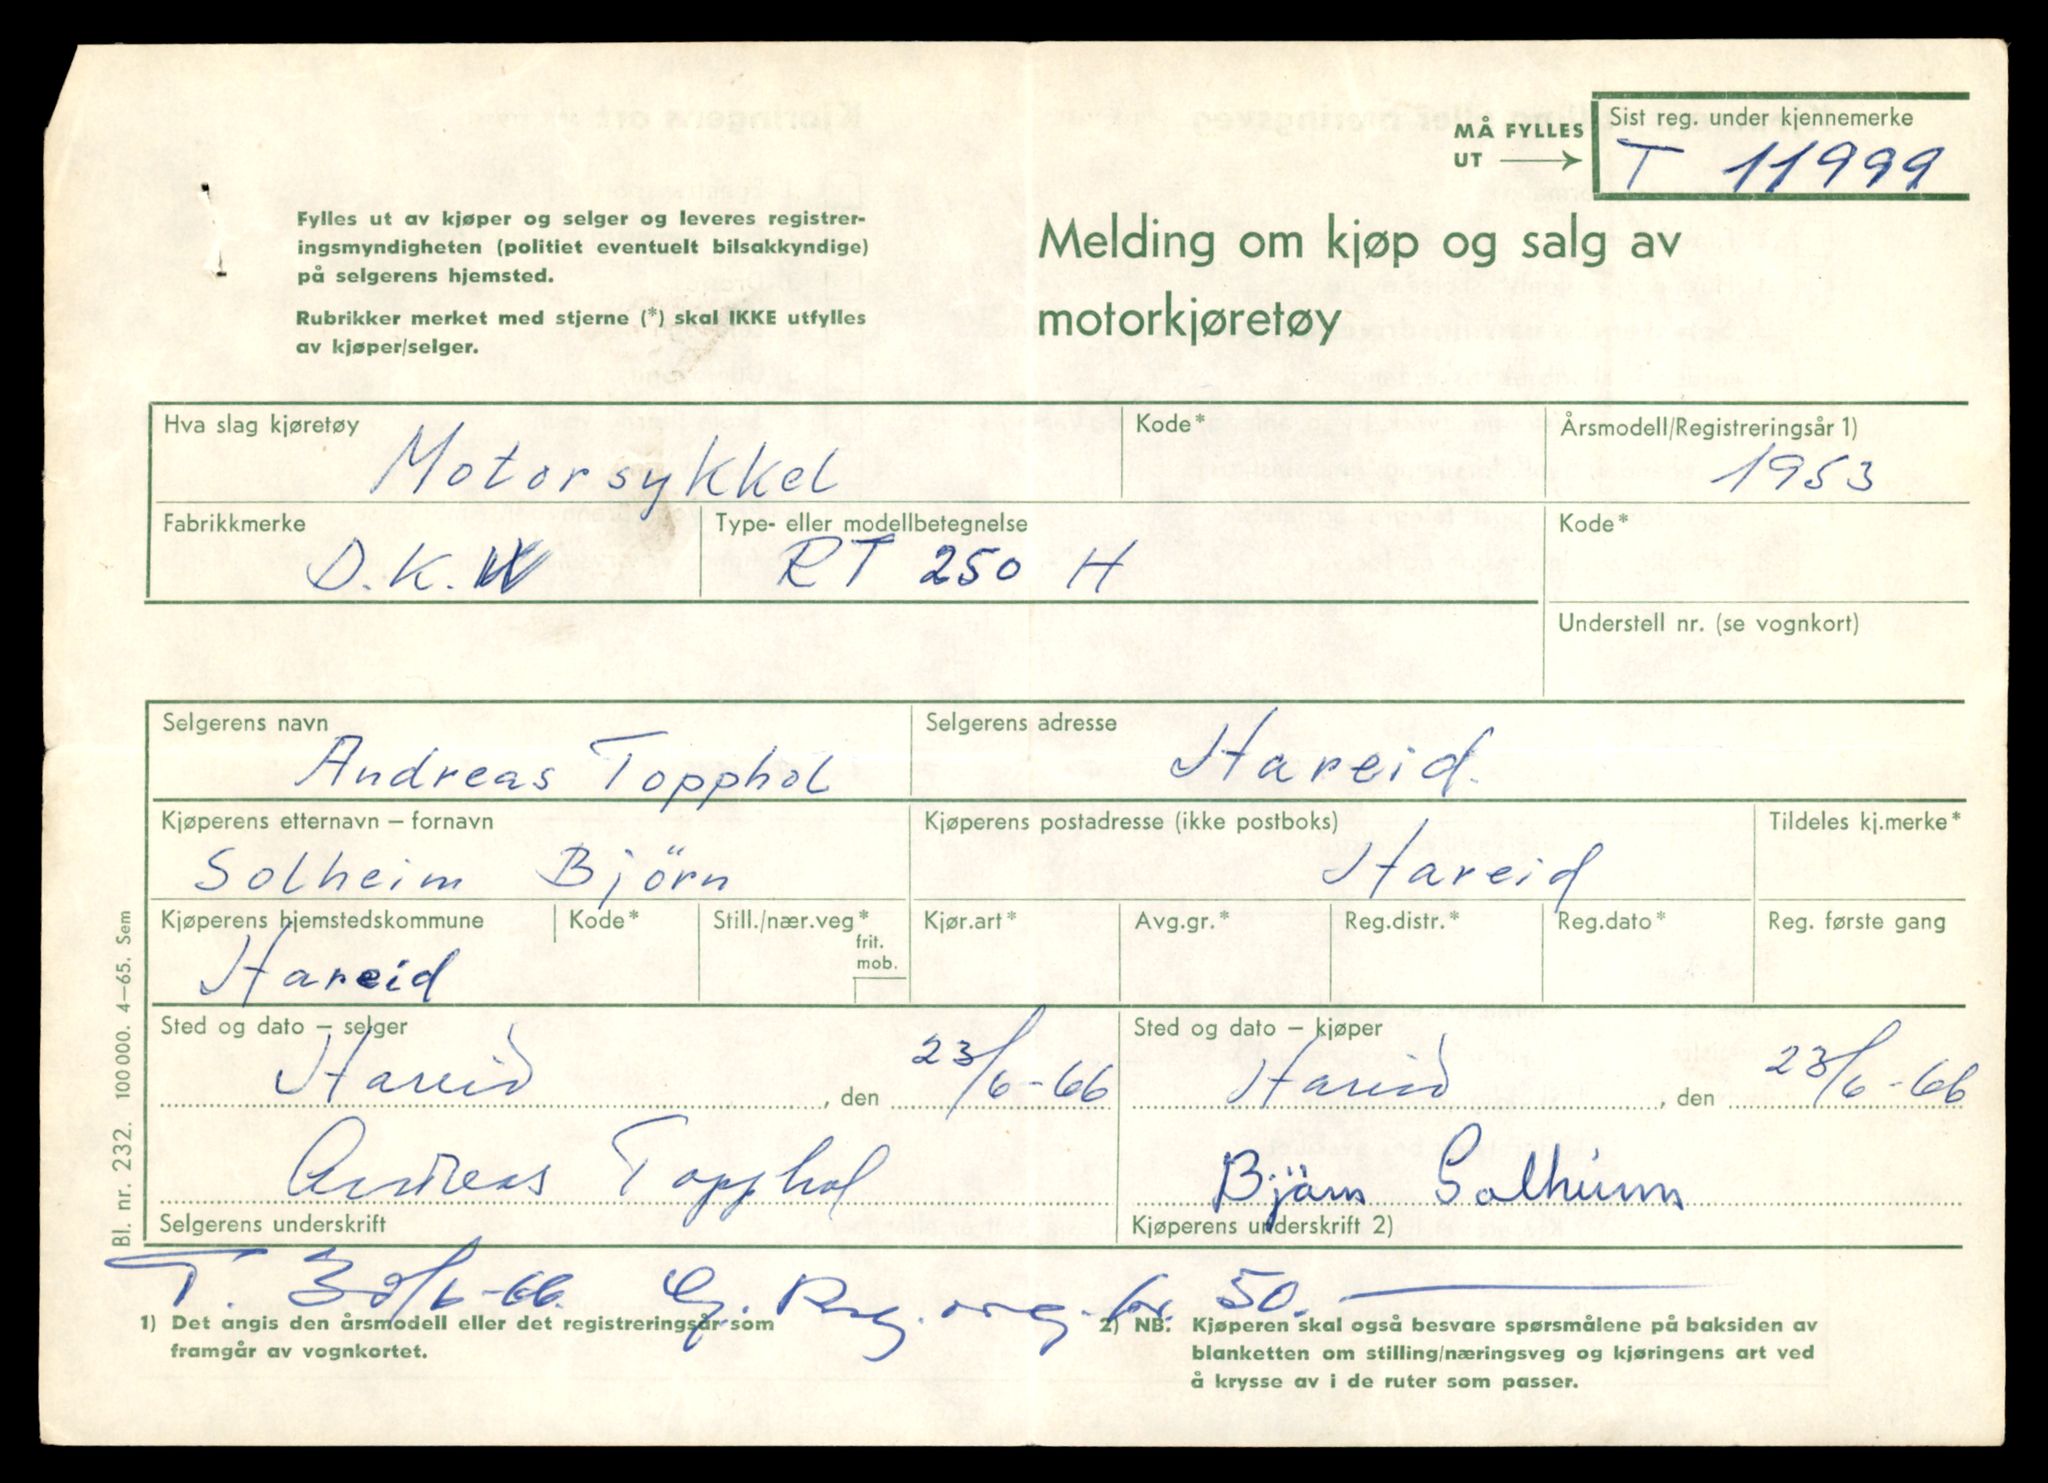 MÅ FYLLES
UT
Sist reg. under kjennemerke
T 11999
Fylles ut av kjøper og selger og leveres registrer-
ingsmyndigheten (politiet eventuelt bilsakkyndige)
på selgerens hjemsted.
Rubrikker merket med stjerne (*) skal IKKE utfylles
av kjøper/selger.
Melding om kjøp og salg av
motorkjøretøy
Hva slag kjøretøy Kode* Årsmodell/Registreringsår 1)
Motorsykkel 1953
Fabrikkmerke Type- eller modellbetegnelse Kode*
D.K.W RT 250 H
Understell nr. (se vognkort)
Selgerens navn Selgerens adresse
Andreas Topphol Hareid.
Kjøperens etternavn – fornavn Kjøperens postadresse (ikke postboks) Tildeles kj.merke*
Solheim Björn Hareid
Kjøperens hjemstedskommune Kode* Still./nær.veg* Kjør.art* Avg.gr.* Reg.distr.* Reg.dato* Reg. første gang
frit.
mob.
Hareid
Sted og dato – selger Sted og dato – kjøper
Hareid , den 23/6-66 Hareid , den 23/6-66
Andreas Topphol Björn Solheim
Selgerens underskrift Kjøperens underskrift 2)
T. 30/6-66. 50.
1) Det angis den årsmodell eller det registreringsår som
framgår av vognkortet.
2) NB. Kjøperen skal også besvare spørsmålene på baksiden av
blanketten om stilling/næringsveg og kjøringens art ved
å krysse av i de ruter som passer.
Bl. nr. 232. 100 000. 4–65. Sem